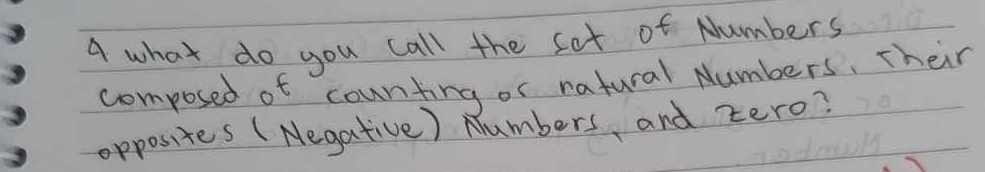 9 what do you call the set of Numbers
composed of counting or natural Numbers, Their
opposites (Negative) Numbers, and zero?